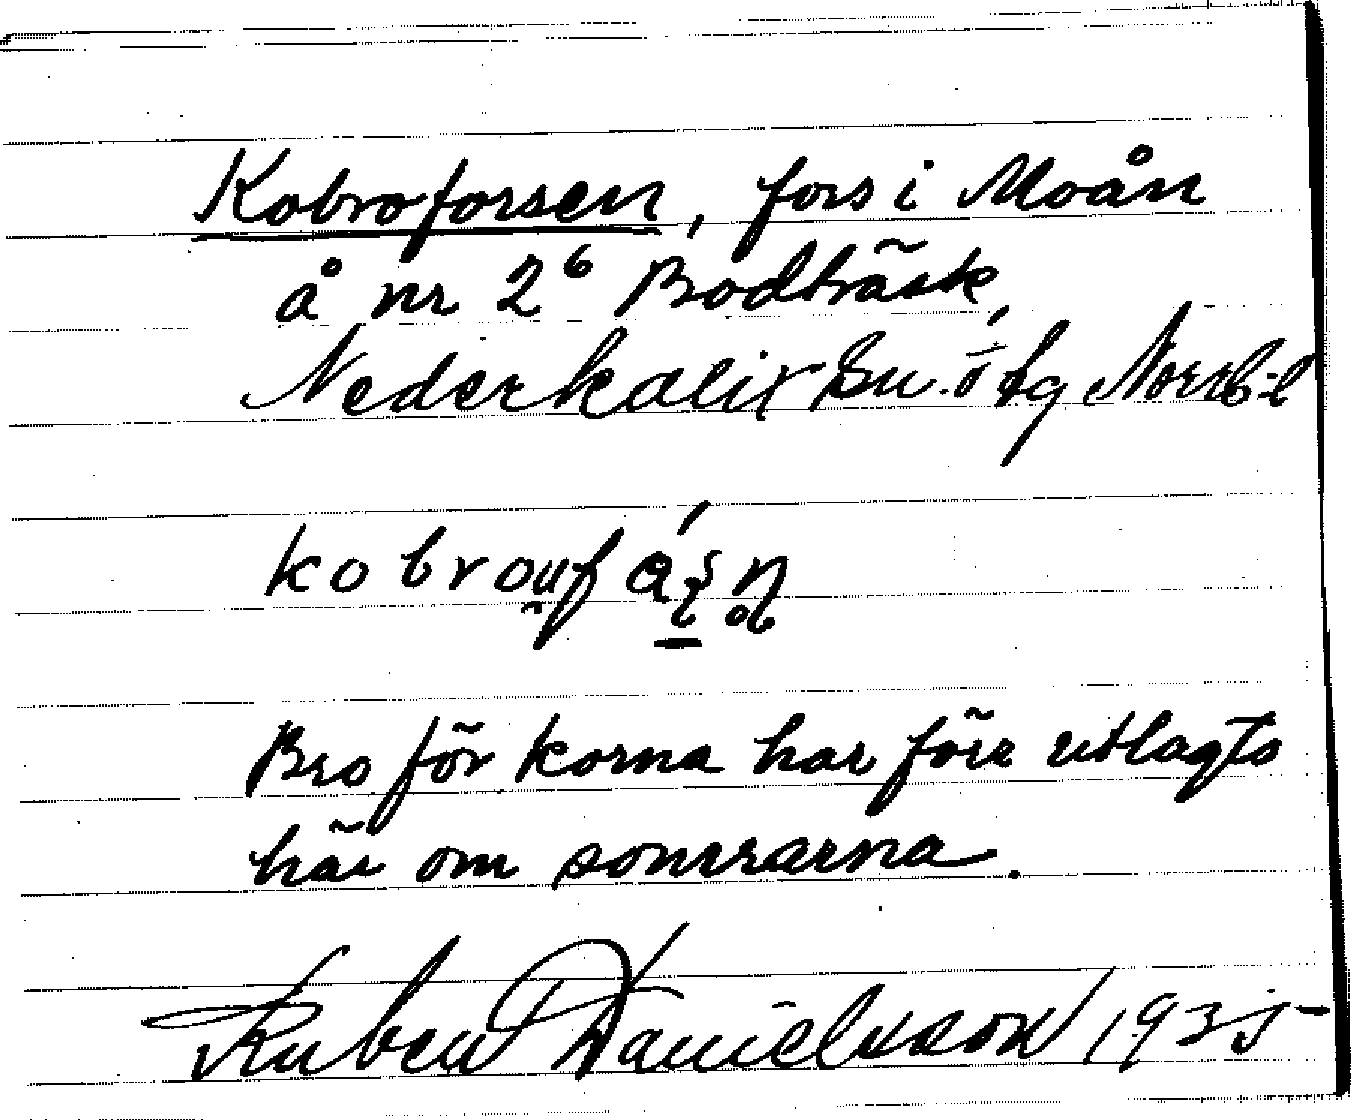 Kobroforsen, fors i Moån
å nr 2⁶ Bodträsk,
Nederkalix sn.
Bro för korna har förr utlagts
här om somrarna.
Ruben Danielsson 1935